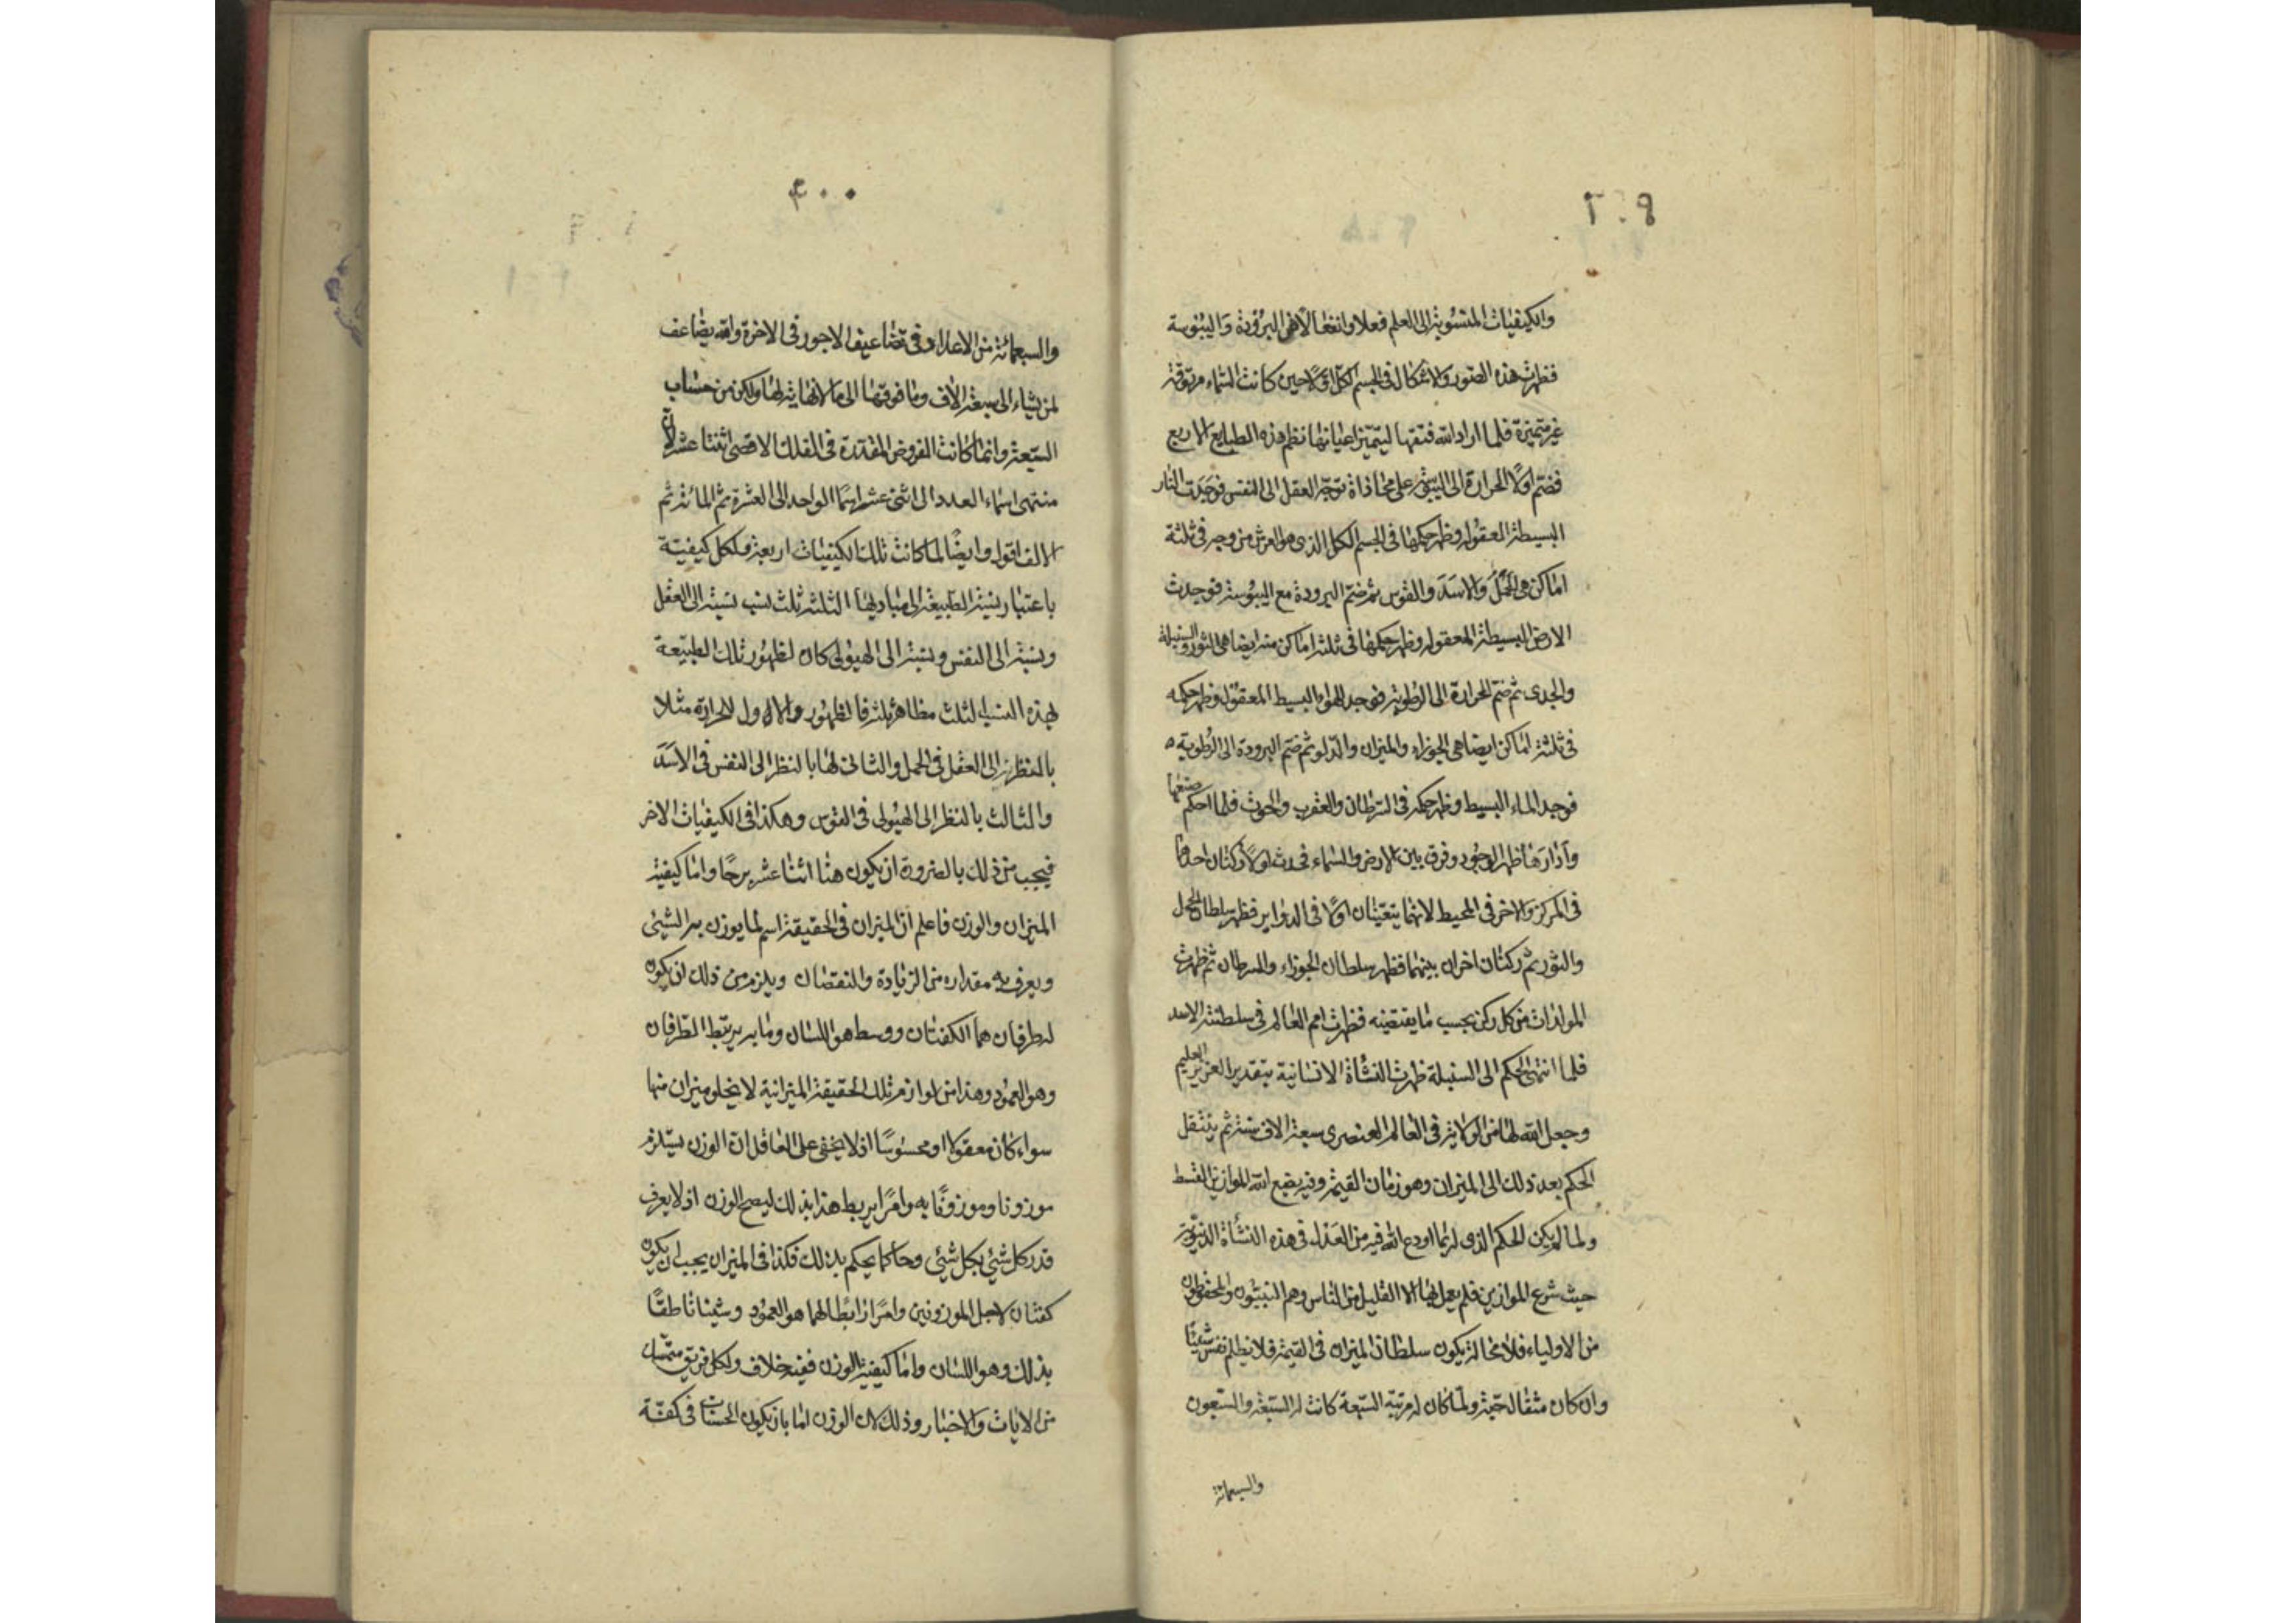 ٢٠٩
والكيفيات المنسوبة الى العلم فعلا وانفعالا هى البرودة واليبوسة
فظهرت هذه الصور والاشكال فى الجسم الكل اولا حين كانت السماء مرتوقة
غير متميزة فلما اراد الله فتقها ليتميز اعيانها نظم هذه الطبايع الاربع
فضم اولا الحرارة الى اليبوسة على محاذاة توجه العقل الى النفس فوجدت النار
البسيطة المعقولة وظهر حكمها فى الجسم الكل الذى هو العرش من وجه فى ثلثة
اماكن هى الحمل والاسد والقوس ثم ضم البرودة مع اليبوسة فوجدت
الارض البسيطة المعقولة وظهر حكمها فى ثلثة اماكن منه ايضا هى الثور والسنبلة
والجدى ثم ضم الحرارة الى الرطوبة فوجد الهواء البسيط المعقول وظهر حكمه
فى ثلثة اماكن ايضا هى الجوزاء والميزان والدلو ثم ضم البرودة الى الرطوبة
فوجد الماء البسيط وظهر حكمه فى السرطان والعقرب والحوت فلما احكم صنعها
وادارها ظهر الوجود وفرق بين الارض والسماء فحدث اولا ركنان احدهما
فى المركز والاخر فى المحيط لانهما يتعينان اولا فى الدواير فظهر سلطان الحمل
والثور ثم ركنان اخران بينهما فظهر سلطان الجوزاء والسرطان ثم ظهرت
المولدات من كل ركن بحسب ما يقتضيه فظهرت امم العالم فى سلطنة الاسد
فلما انتهى الحكم الى السنبلة ظهرت النشاة الانسانية بتقدير العزيز العليم
وجعل الله لها من الولاية فى العالم العنصرى سبعة الاف سنة ثم ينتقل
الحكم بعد ذلك الى الميزان وهو زمان القيمة وفيه يضع الله الموازين القسط
ولما لم يكن الحكم الذى له بما اودع الله فيه من العدل فى هذه النشأة الدنيوية
حيث شرع الموازين فلم يعمل بها الا القليل من الناس وهم النبيون والمحفوظون
من الاولياء فلا محالة يكون سلطان الميزان فى القيمة فلا يظلم نفس شيئا
وان كان مثقال حبة ولما كان له مرتبة السبعة كانت له السبعة والسبعون
والسبعمائة
۴۰۰
والسبعمائة من الاعداد وفى تضاعيف الاجور فى الاخرة والله يضاعف
لمن يشاء الى سبعة الاف وما فوقها الى ما لا نهاية لها ولكن من حساب
السبعة وانما كانت الفروض المقدرة فى الفلك الاقصى اثنتا عشر لان
منتهى اسماء العدد الى اثنى عشر اسما الواحد الى العشرة ثم المائة ثم
الالف اقول وايضا لما كانت تلك الكيفيات اربعة ولكل كيفية
باعتبار نسبة الطبيعة الى مباديها الثلثة ثلث نسب نسبة الى العقل
ونسبة الى النفس ونسبة الى الهيولى كان لظهور تلك الطبيعة
بهذه النسب الثلث مظاهر ثلثة فالظهور الاول للحرارة مثلا
بالنظر الى العقل فى الحمل والثانى لها بالنظر الى النفس فى الاسد
والثالث بالنظر الى الهيولى فى القوس وهكذا فى الكيفيات الاخر
فيجب من ذلك بالضرورة ان يكون هنا اثنتا عشر برجا واما كيفية
الميزان والوزن فاعلم ان الميزان فى الحقيقة اسم لما يوزن به الشيئ
ويعرف به مقداره من الزيادة والنقصان ويلزم من ذلك ان يكون
له طرفان هما الكفتان ووسط هو اللسان وما به يرتبط الطرفان
وهو العمود وهذا من لوازم تلك الحقيقة الميزانية لا يخلو ميزان منها
سواء كان معقولا او محسوسا اذ لا يخفى على العاقل ان الوزن يستلزم
موزونا وموزونا به وامرا يربط هذا بذلك ليصح الوزن اذ لا يعرف
قدر كل شيئ بكل شيئ وحاكما يحكم بذلك فكذا فى الميزان يجب ان يكون
كفتان لاجل الموزونين وامرا رابطا لهما هو العمود وشيئا ناطقا
بذلك وهو اللسان واما كيفية الوزن ففيه خلاف ولكل فريق متمسك
من الايات والاخبار وذلك لان الوزن اما بان يكون الحسنات فى كفة